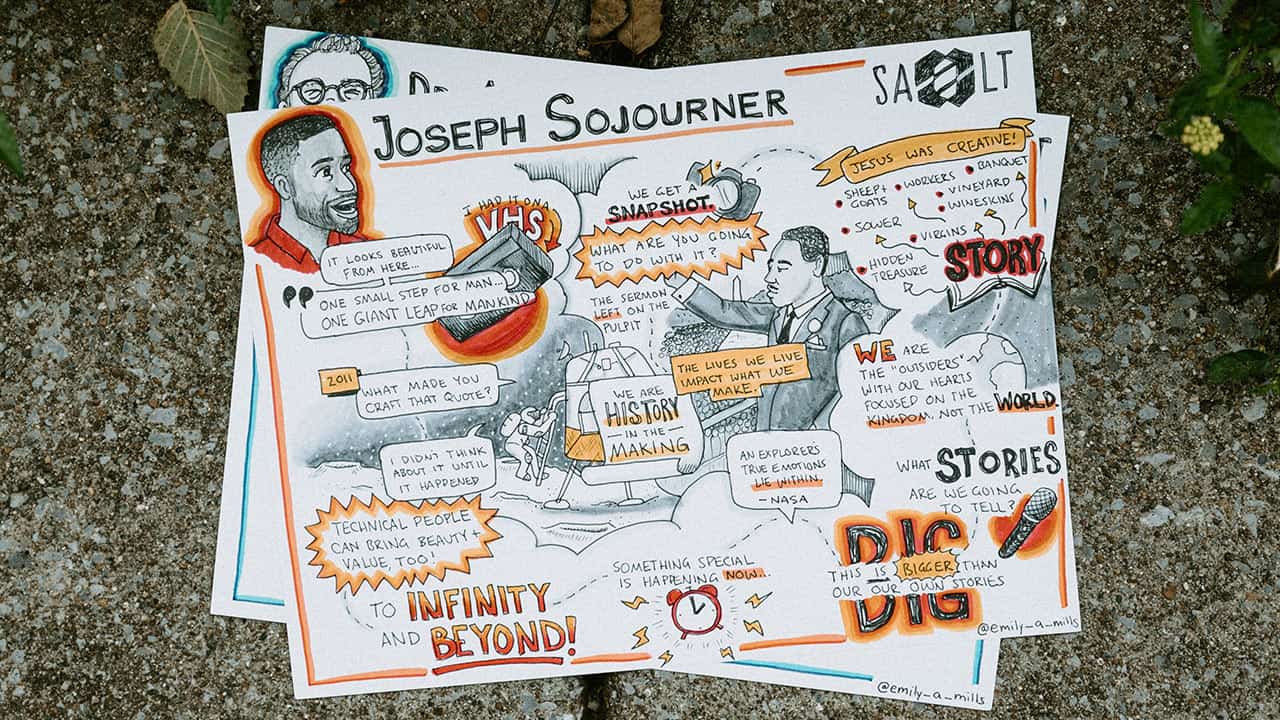 JOSEPH SOJOURNER
SALT
JESUS WAS CREATIVE!
SHEEP +
GOATS
WORKERS
BANQUET
VINEYARD
WINESKINS
SOWER
VIRGINS
HIDDEN
TREASURE
STORY
I HAD IT ON A
VHS
WE GET A
SNAPSHOT.
WHAT ARE YOU GOING
TO DO WITH IT?
IT LOOKS BEAUTIFUL
FROM HERE...
"ONE SMALL STEP FOR MAN...
ONE GIANT LEAP FOR MANKIND
THE SERMON
LEFT ON THE
PULPIT
THE LIVES WE LIVE
IMPACT WHAT WE
MAKE.
2011
WHAT MADE YOU
CRAFT THAT QUOTE?
WE ARE
HISTORY
- IN THE -
MAKING
WE ARE
THE "OUTSIDERS"
WITH OUR HEARTS
FOCUSED ON THE
KINGDOM, NOT THE WORLD.
I DIDN'T THINK
ABOUT IT UNTIL
IT HAPPENED
AN EXPLORER'S
TRUE EMOTIONS
LIE WITHIN.
- NASA
WHAT STORIES
ARE WE GOING
TO TELL?
TECHNICAL PEOPLE
CAN BRING BEAUTY +
VALUE, TOO!
TO INFINITY
AND BEYOND!
SOMETHING SPECIAL
IS HAPPENING NOW...
BIG
THIS IS BIGGER THAN
OUR OUR OWN STORIES
BIG
@emily_a_mills
@emily_a_mills